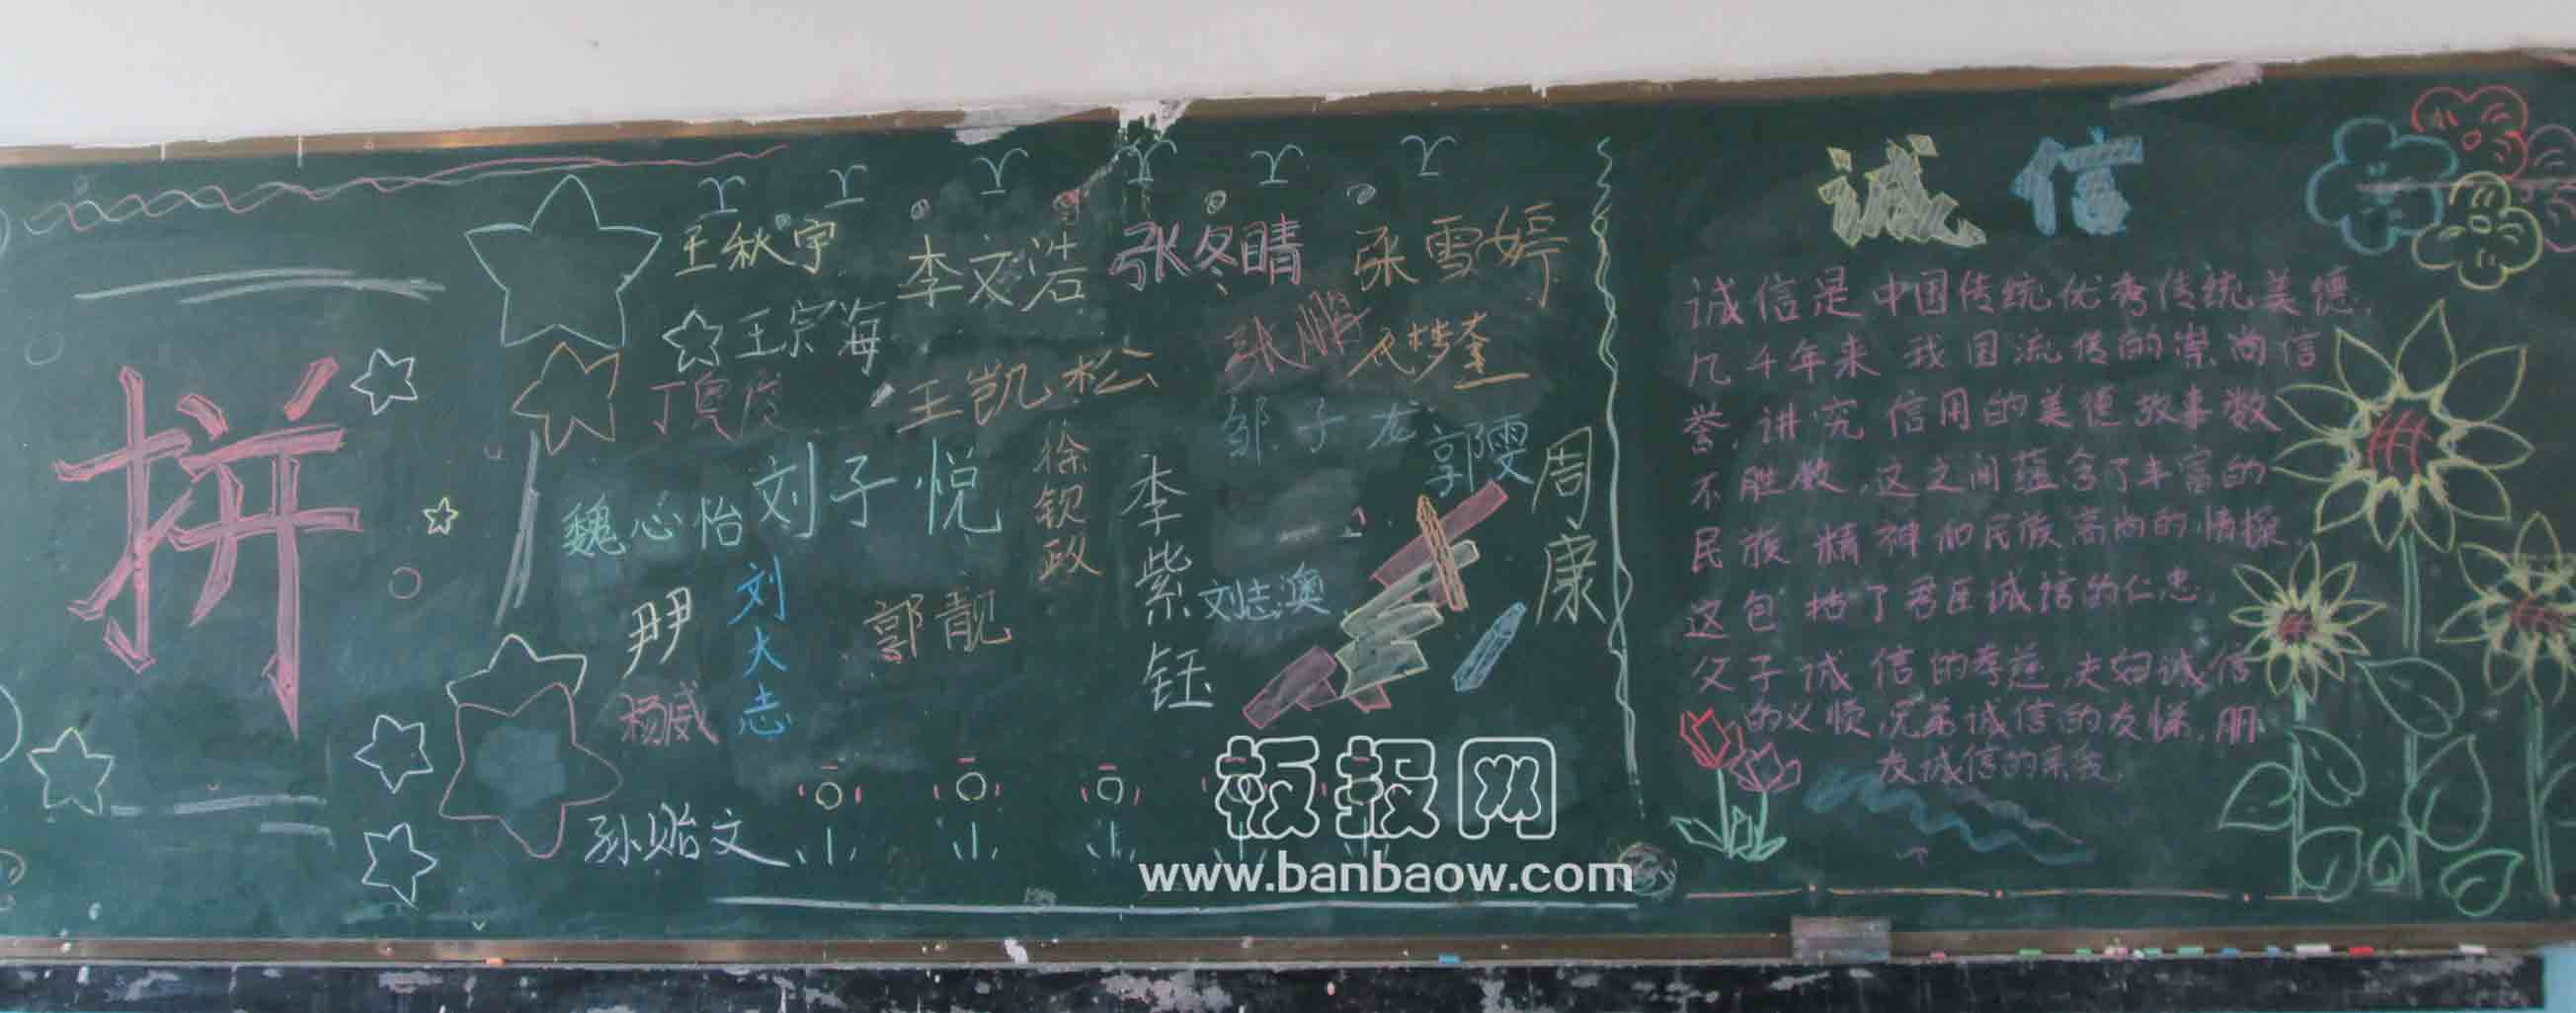 拼
王秋宇
李文浩
张冬晴
张雪婷
王宗海
张鹏
王凯松
邹子龙
郭雯
周康
魏心怡
刘子悦
徐钡政
李紫钰
刘志澳
尹尹
刘大志
郭靓
杨威
孙贻文
诚信
诚信是中国传统优秀传统美德.
几千年来 我国流传的崇尚信
誉,讲究 信用的美德故事数
不胜数,这之间蕴含了丰富的
民族 精神和民族高尚的情操.
这包括了君臣诚信的仁忠,
父子诚信的孝慈,夫妇诚信
的义顺,兄弟诚信的友悌,朋
友诚信的
板报网
www.banbaow.com